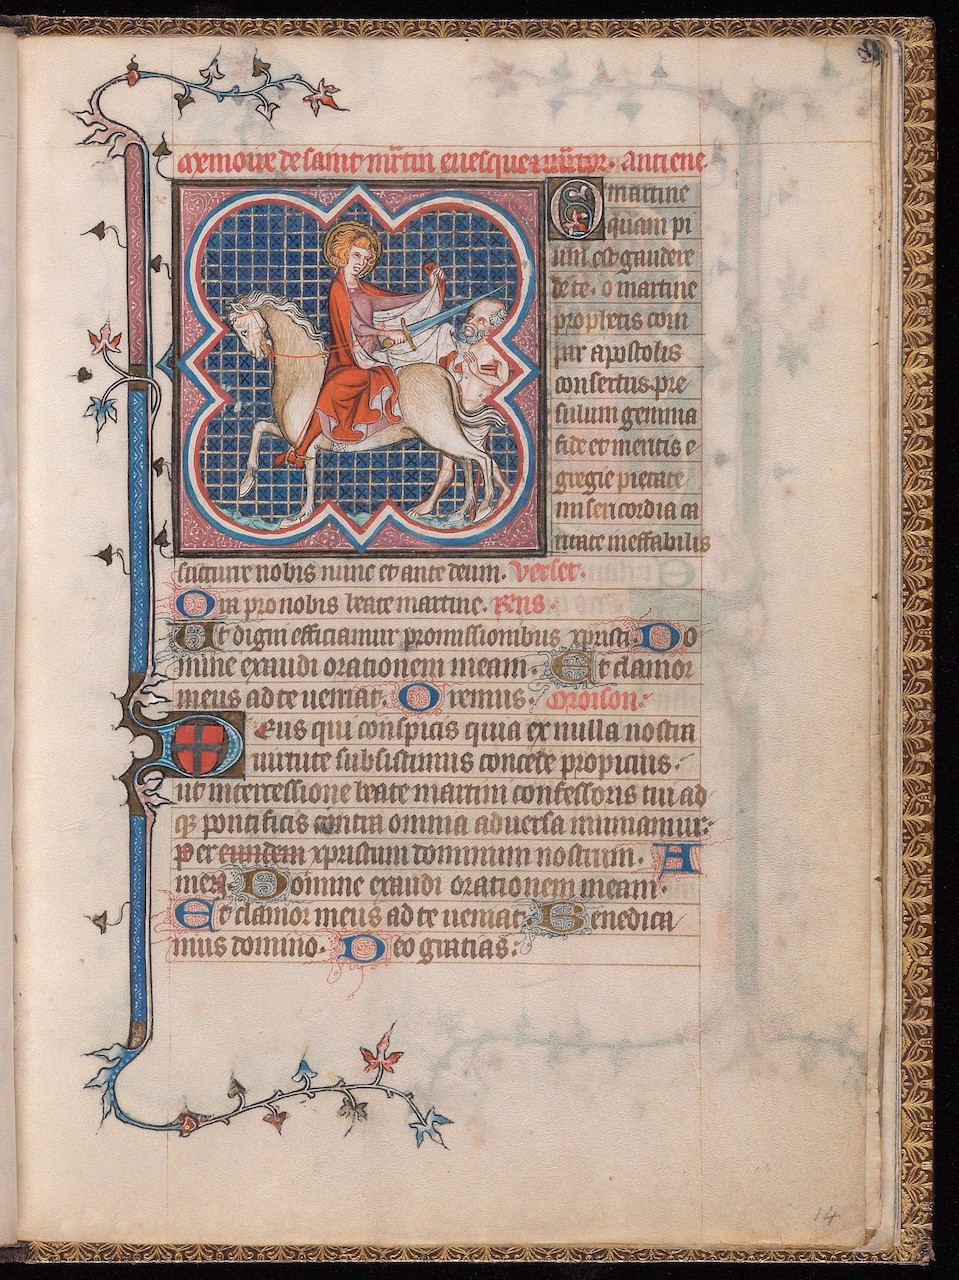 Memoire de saint mr̄tin euesque et . antiene.
O martine
quam pi
um est gaudere
de te. o martine
prophetis com
par apostolis
consertus. pre
sulum gemma
fide et meritis e
gregie pietate
misericordia ca
ritate ineffabilis
succurre nobis nunc et ante deum. Verset.
Ora pro nobis beate martine. Rens.
Ut digni efficiamur promissionibus xpristi. Do
mine exaudi orationem meam. Et clamor
meus ad te ueniat. Oremus. Oroison.
Deus qui conspicis quia ex nulla nostra
uirtute subsistimus concede propicius.
ut intercessione beate martini confessoris tui ad
q̄ pontificis contra omnia aduersa muniamur.
Per eundem xpristum dominum nostrum. A
men. Domine exaudi orationem meam.
Et clamor meus ad te ueniat. Benedica
mus domino. Deo gratias.
14